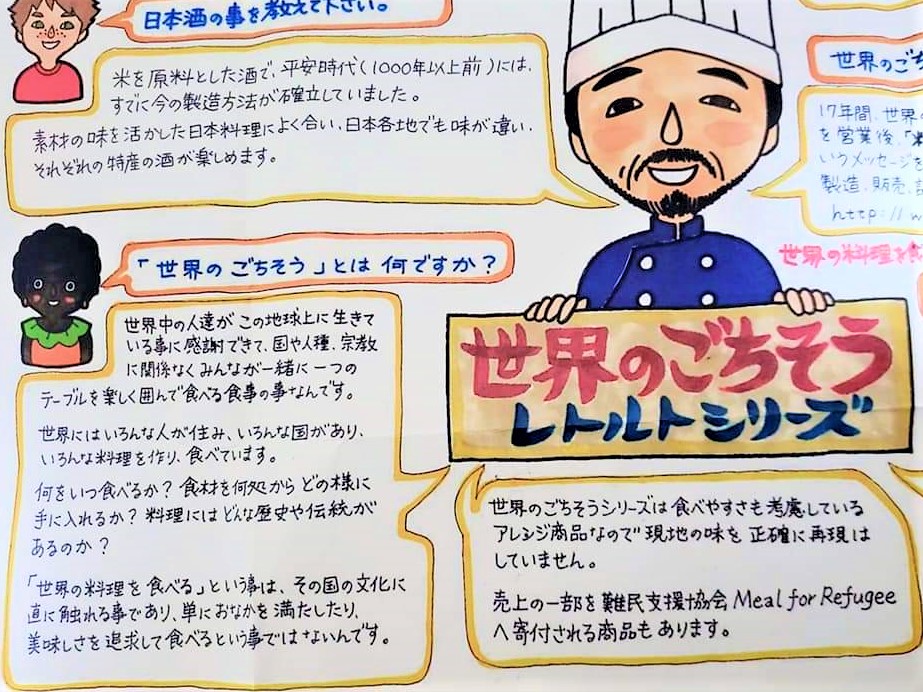 日本酒の事を教えて下さい。
米を原料とした酒で、平安時代(1000年以上前)には、
すでに今の製造方法が確立していました。
素材の味を活かした日本料理によく合い、日本各地でも味が違い、
それぞれの特産の酒が楽しめます。
「世界のごちそう」とは何ですか？
世界中の人達がこの地球上に生きて
いる事に感謝できて、国や人種、宗教
に関係なくみんなが一緒に一つの
テーブルを楽しく囲んで食べる食事の事なんです。
世界にはいろんな人が住み、いろんな国があり、
いろんな料理を作り、食べています。
何をいつ食べるか？食材を何処からどの様に
手に入れるか？料理にはどんな歴史や伝統が
あるのか？
「世界の料理を食べる」という事は、その国の文化に
直に触れる事であり、単におなかを満たしたり、
美味しさを追求して食べるという事ではないんです。
世界のごち
17年間、世界
を営業後、
いうメッセージを
製造、販売、
http://w
世界の料理を食
世界のごちそう
レトルトシリーズ
世界のごちそうシリーズは食べやすさも考慮している
アレンジ商品なので現地の味を正確に再現は
していません。
売上の一部を難民支援協会 Meal for Refugee
へ寄付される商品もあります。